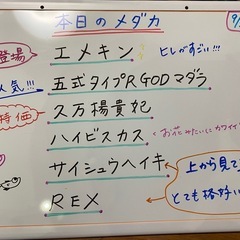 本日のメダカ
9/
登場
エメキン
ヒレがすごい!!!
人気!!!
五式タイプR GOD マダラ
特価
久万楊貴妃
ハイビスカス
お花みたいにカワイイ
サイシュウヘイキ
上から見て
REX
とても格好い